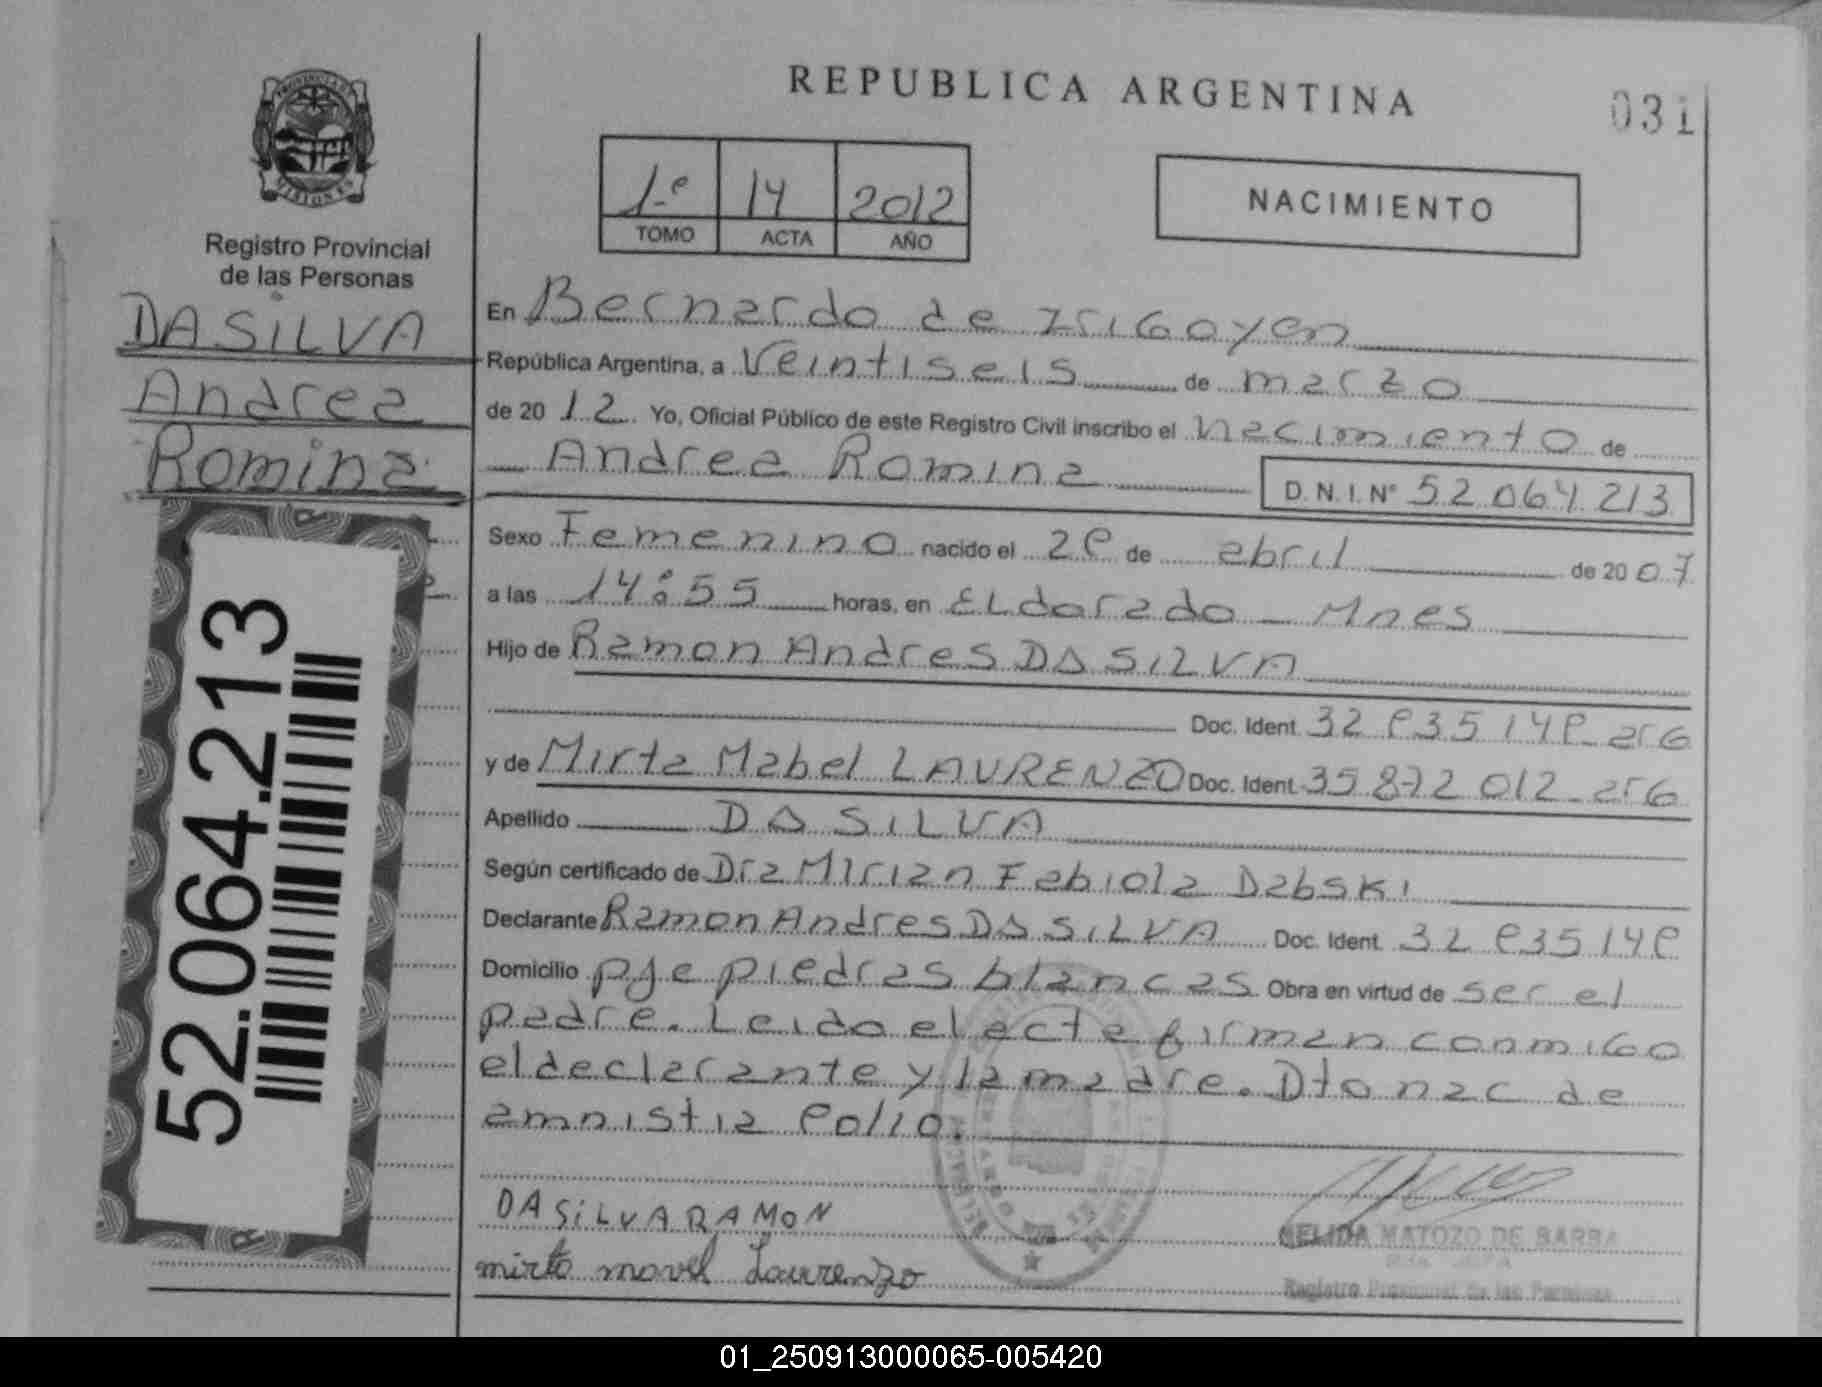 REPUBLICA ARGENTINA
031
PROVINCIA DE
MISIONES
Registro Provincial
de las Personas
1º 14 2012
TOMO ACTA AÑO
NACIMIENTO
DA SILVA
Andrea
Romina
52.064.213
En Bernardo de Irigoyen
República Argentina, a Veintiseis de marzo
de 2012 Yo, Oficial Público de este Registro Civil inscribo el nacimiento de
Andrea Romina D.N.I.Nº 52 064 213
Sexo Femenino nacido el de abril de 2007
a las 14:55 horas, en ELdorado - Mnes
Hijo de Ramon Andres DA SILVA
Doc. Ident. arg
y de Mirta Mabel LAURENZO Doc. Ident. 35 872 012 - arg
Apellido DA SILVA
Según certificado de Dra Mirian Fabiola Dabski
Declarante Ramon Andres DA SILVA Doc. Ident.
Domicilio pje piedras blancas Obra en virtud de ser el
padre. Leido el acta firman conmigo
el declarante y la madre. Dto nac de
amnistia
DA SiLVA RAMON
mirta mavel Laurrenzo
NELIDA MATOZO DE BARBA
Registro Provincial de las Personas
01_250913000065-005420